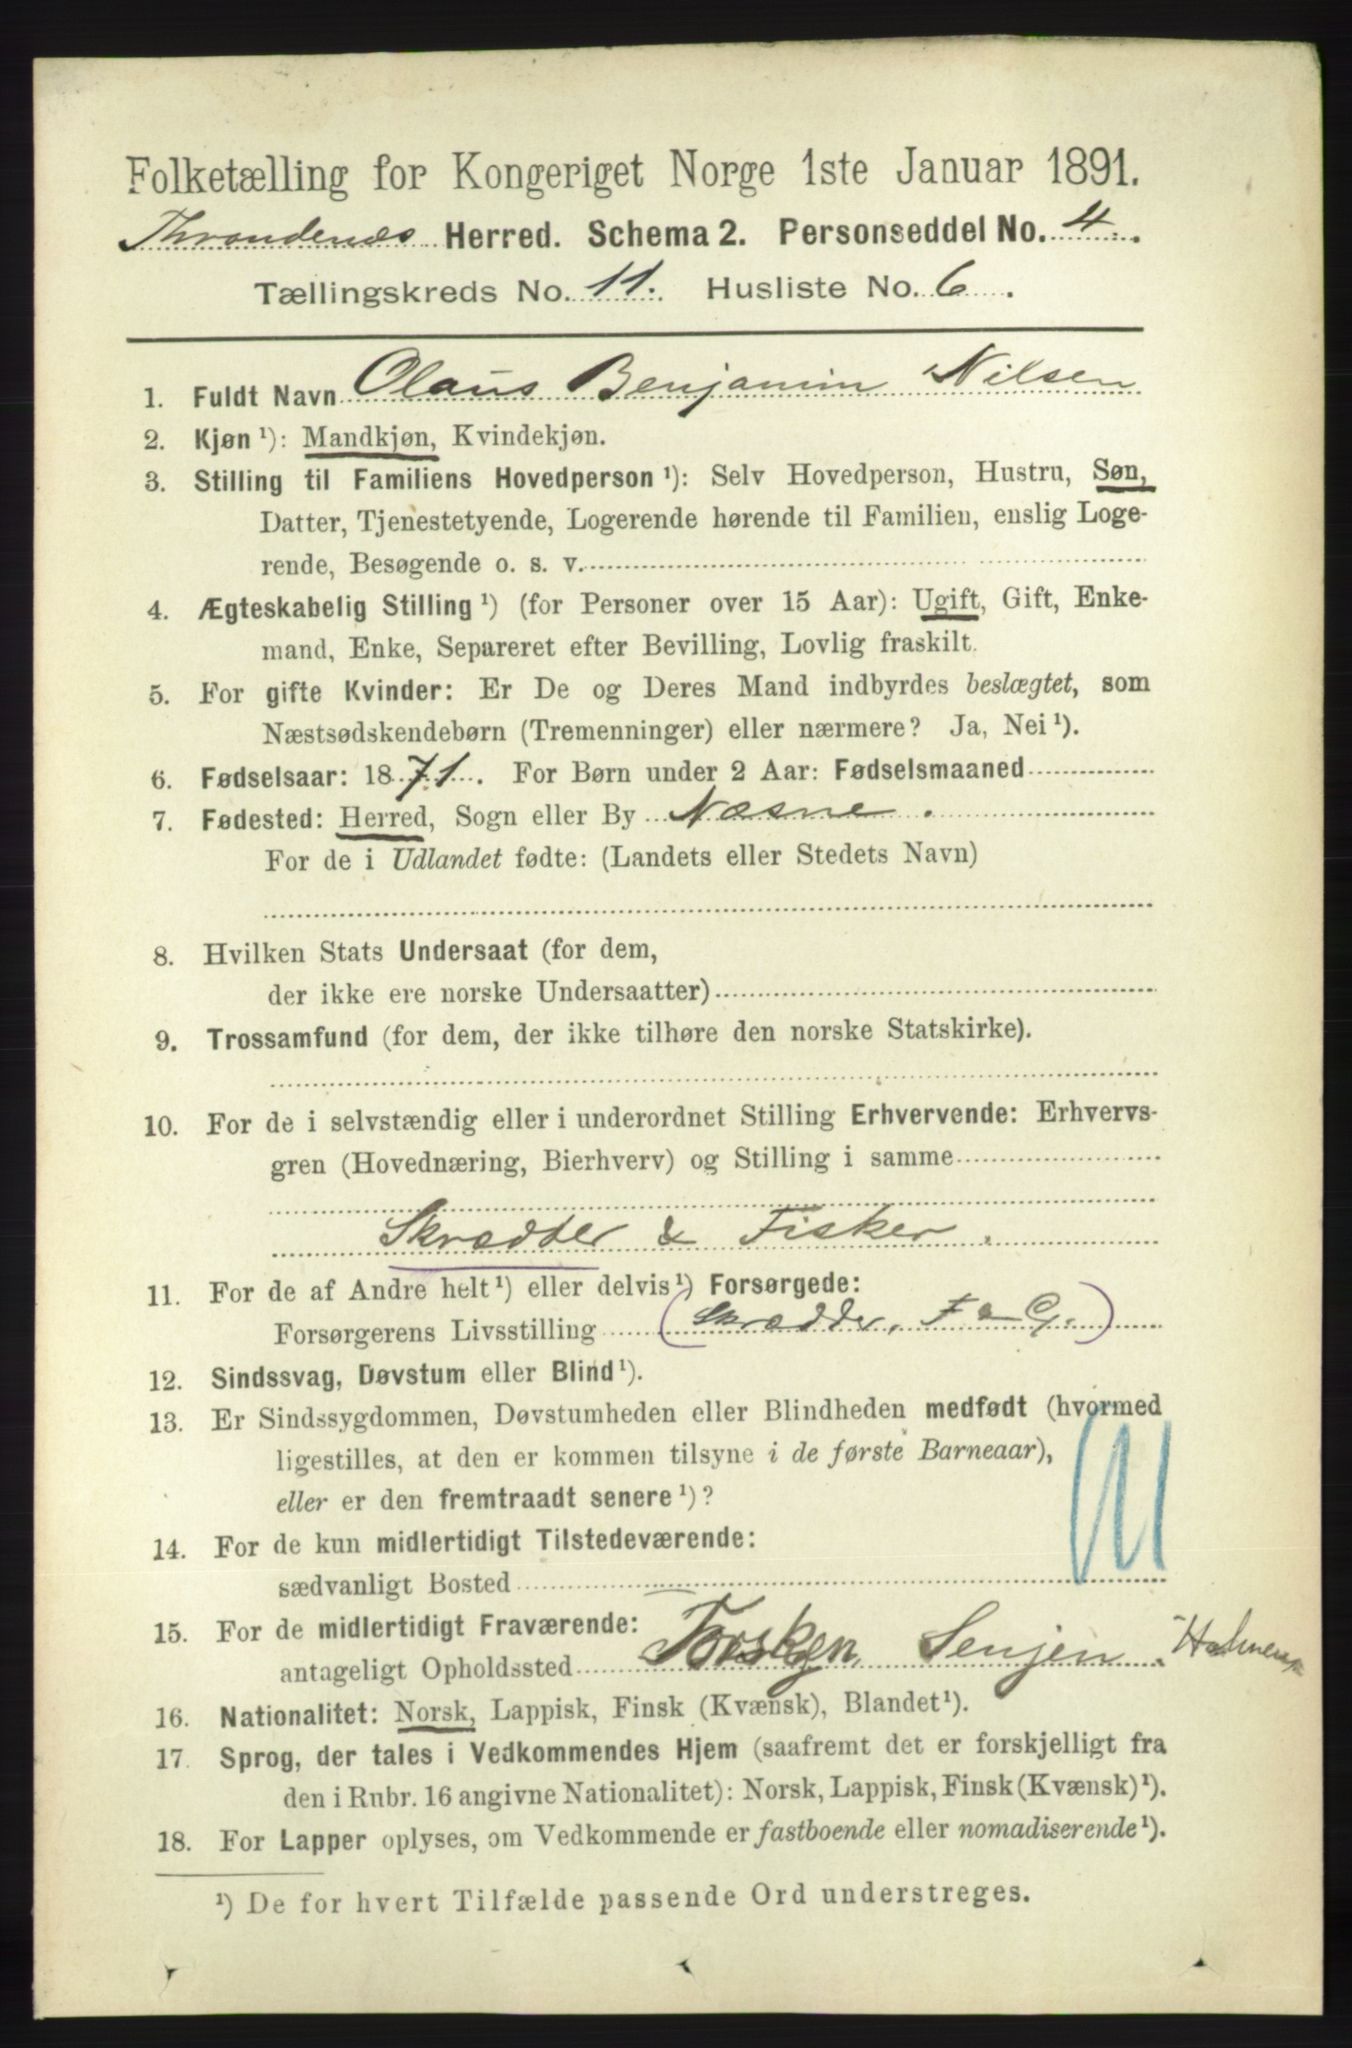 Folketælling for Kongeriget Norge 1ste Januar 1891.
Throndenæs Herred. Schema 2. Personseddel No. 4.
Tællingskreds No. 11. Husliste No. 6.
1. Fuldt Navn Olaus Benjamin Nilsen
2. Kjøn ¹): Mandkjøn, Kvindekjøn.
3. Stilling til Familiens Hovedperson ¹): Selv Hovedperson, Hustru, Søn,
Datter, Tjenestetyende, Logerende hørende til Familien, enslig Loge-
rende, Besøgende o. s. v.
4. Ægteskabelig Stilling ¹) (for Personer over 15 Aar): Ugift, Gift, Enke-
mand, Enke, Separeret efter Bevilling, Lovlig fraskilt.
5. For gifte Kvinder: Er De og Deres Mand indbyrdes beslægtet, som
Næstsødskendebørn (Tremenninger) eller nærmere? Ja, Nei ¹).
6. Fødselsaar: 1871. For Børn under 2 Aar: Fødselsmaaned
7. Fødested: Herred, Sogn eller By Næsne.
For de i Udlandet fødte: (Landets eller Stedets Navn)
8. Hvilken Stats Undersaat (for dem,
der ikke ere norske Undersaatter)
9. Trossamfund (for dem, der ikke tilhøre den norske Statskirke).
10. For de i selvstændig eller i underordnet Stilling Erhvervende: Erhvervs-
gren (Hovednæring, Bierhverv) og Stilling i samme
Skrædder & Fisker.
11. For de af Andre helt ¹) eller delvis ¹) Forsørgede:
Forsørgerens Livsstilling (Skrædder, F & G.)
12. Sindssvag, Døvstum eller Blind ¹).
13. Er Sindssygdommen, Døvstumheden eller Blindheden medfødt (hvormed
ligestilles, at den er kommen tilsyne i de første Barneaar),
eller er den fremtraadt senere ¹)?
14. For de kun midlertidigt Tilstedeværende:
sædvanligt Bosted
15. For de midlertidigt Fraværende:
antageligt Opholdssted Torsken Senjen.
16. Nationalitet: Norsk, Lappisk, Finsk (Kvænsk), Blandet ¹).
17. Sprog, der tales i Vedkommendes Hjem (saafremt det er forskjelligt fra
den i Rubr. 16 angivne Nationalitet): Norsk, Lappisk, Finsk (Kvænsk) ¹).
18. For Lapper oplyses, om Vedkommende er fastboende eller nomadiserende ¹).
¹) De for hvert Tilfælde passende Ord understreges.